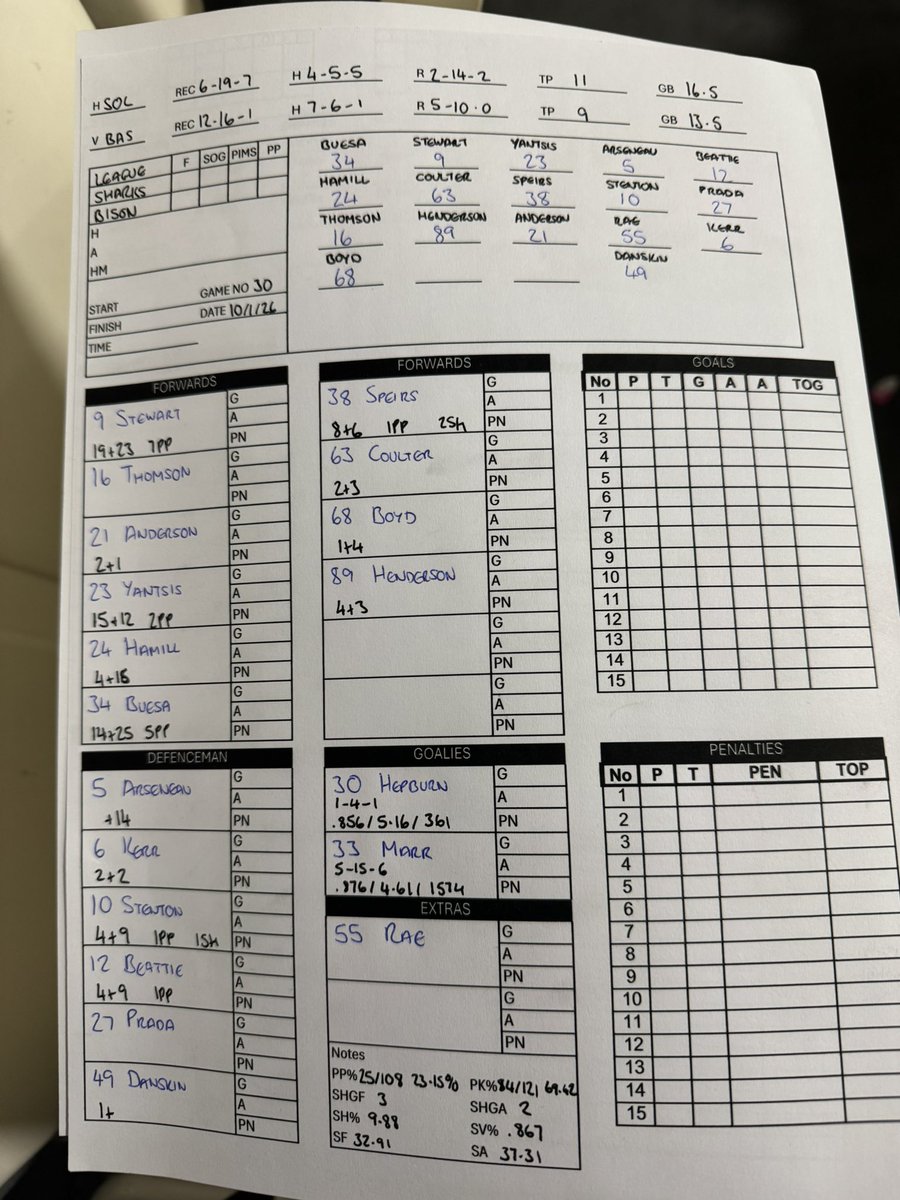 H SOL REC 6-19-7 H 4-5-5 R 2-14-2 TP 11 GB 16.5
V BAS REC 12-16-1 H 7-6-1 R 5-10-0 TP 9 GB 13.5
F SOG PIMS PP
LEAGUE
SHARKS
BISON
H
A
HM
START GAME NO 30
FINISH DATE 10/1/26
TIME
BUESA STEWART YANTSIS ARSENEAU BEATTIE
34 9 23 5 12
HAMILL COULTER SPEIRS STENTON PRADA
24 63 38 10 27
THOMSON HENDERSON ANDERSON RAE KERR
16 89 21 55 6
BOYD DANSKIN
68 49
FORWARDS
9 STEWART G
A
19+23 7PP PN
16 THOMSON G
A
PN
21 ANDERSON G
A
2+1 PN
23 YANTSIS G
A
15+12 2PP PN
24 HAMILL G
A
4+15 PN
34 BUESA G
A
14+25 5PP PN
FORWARDS
38 SPEIRS G
A
8+6 1PP 2SH PN
63 COULTER G
A
2+3 PN
68 BOYD G
A
1+4 PN
89 HENDERSON G
A
4+3 PN
G
A
PN
G
A
PN
GOALS
No P T G A A TOG
1
2
3
4
5
6
7
8
9
10
11
12
13
14
15
DEFENCEMAN
5 ARSENEAU G
A
+14 PN
6 KERR G
A
2+2 PN
10 STENTON G
A
4+9 1PP 1SH PN
12 BEATTIE G
A
4+9 1PP PN
27 PRADA G
A
PN
49 DANSKIN G
A
1+ PN
GOALIES
30 HEPBURN G
1-4-1 A
.856/5.16/361 PN
33 MARR G
5-15-6 A
.876/4.61/1574 PN
EXTRAS
55 RAE G
A
PN
G
A
PN
Notes
PP% 25/108 23.15% PK% 84/121 69.42
SHGF 3 SHGA 2
SH% 9.88 SV% .867
SF 32.91 SA 37.31
PENALTIES
No P T PEN TOP
1
2
3
4
5
6
7
8
9
10
11
12
13
14
15